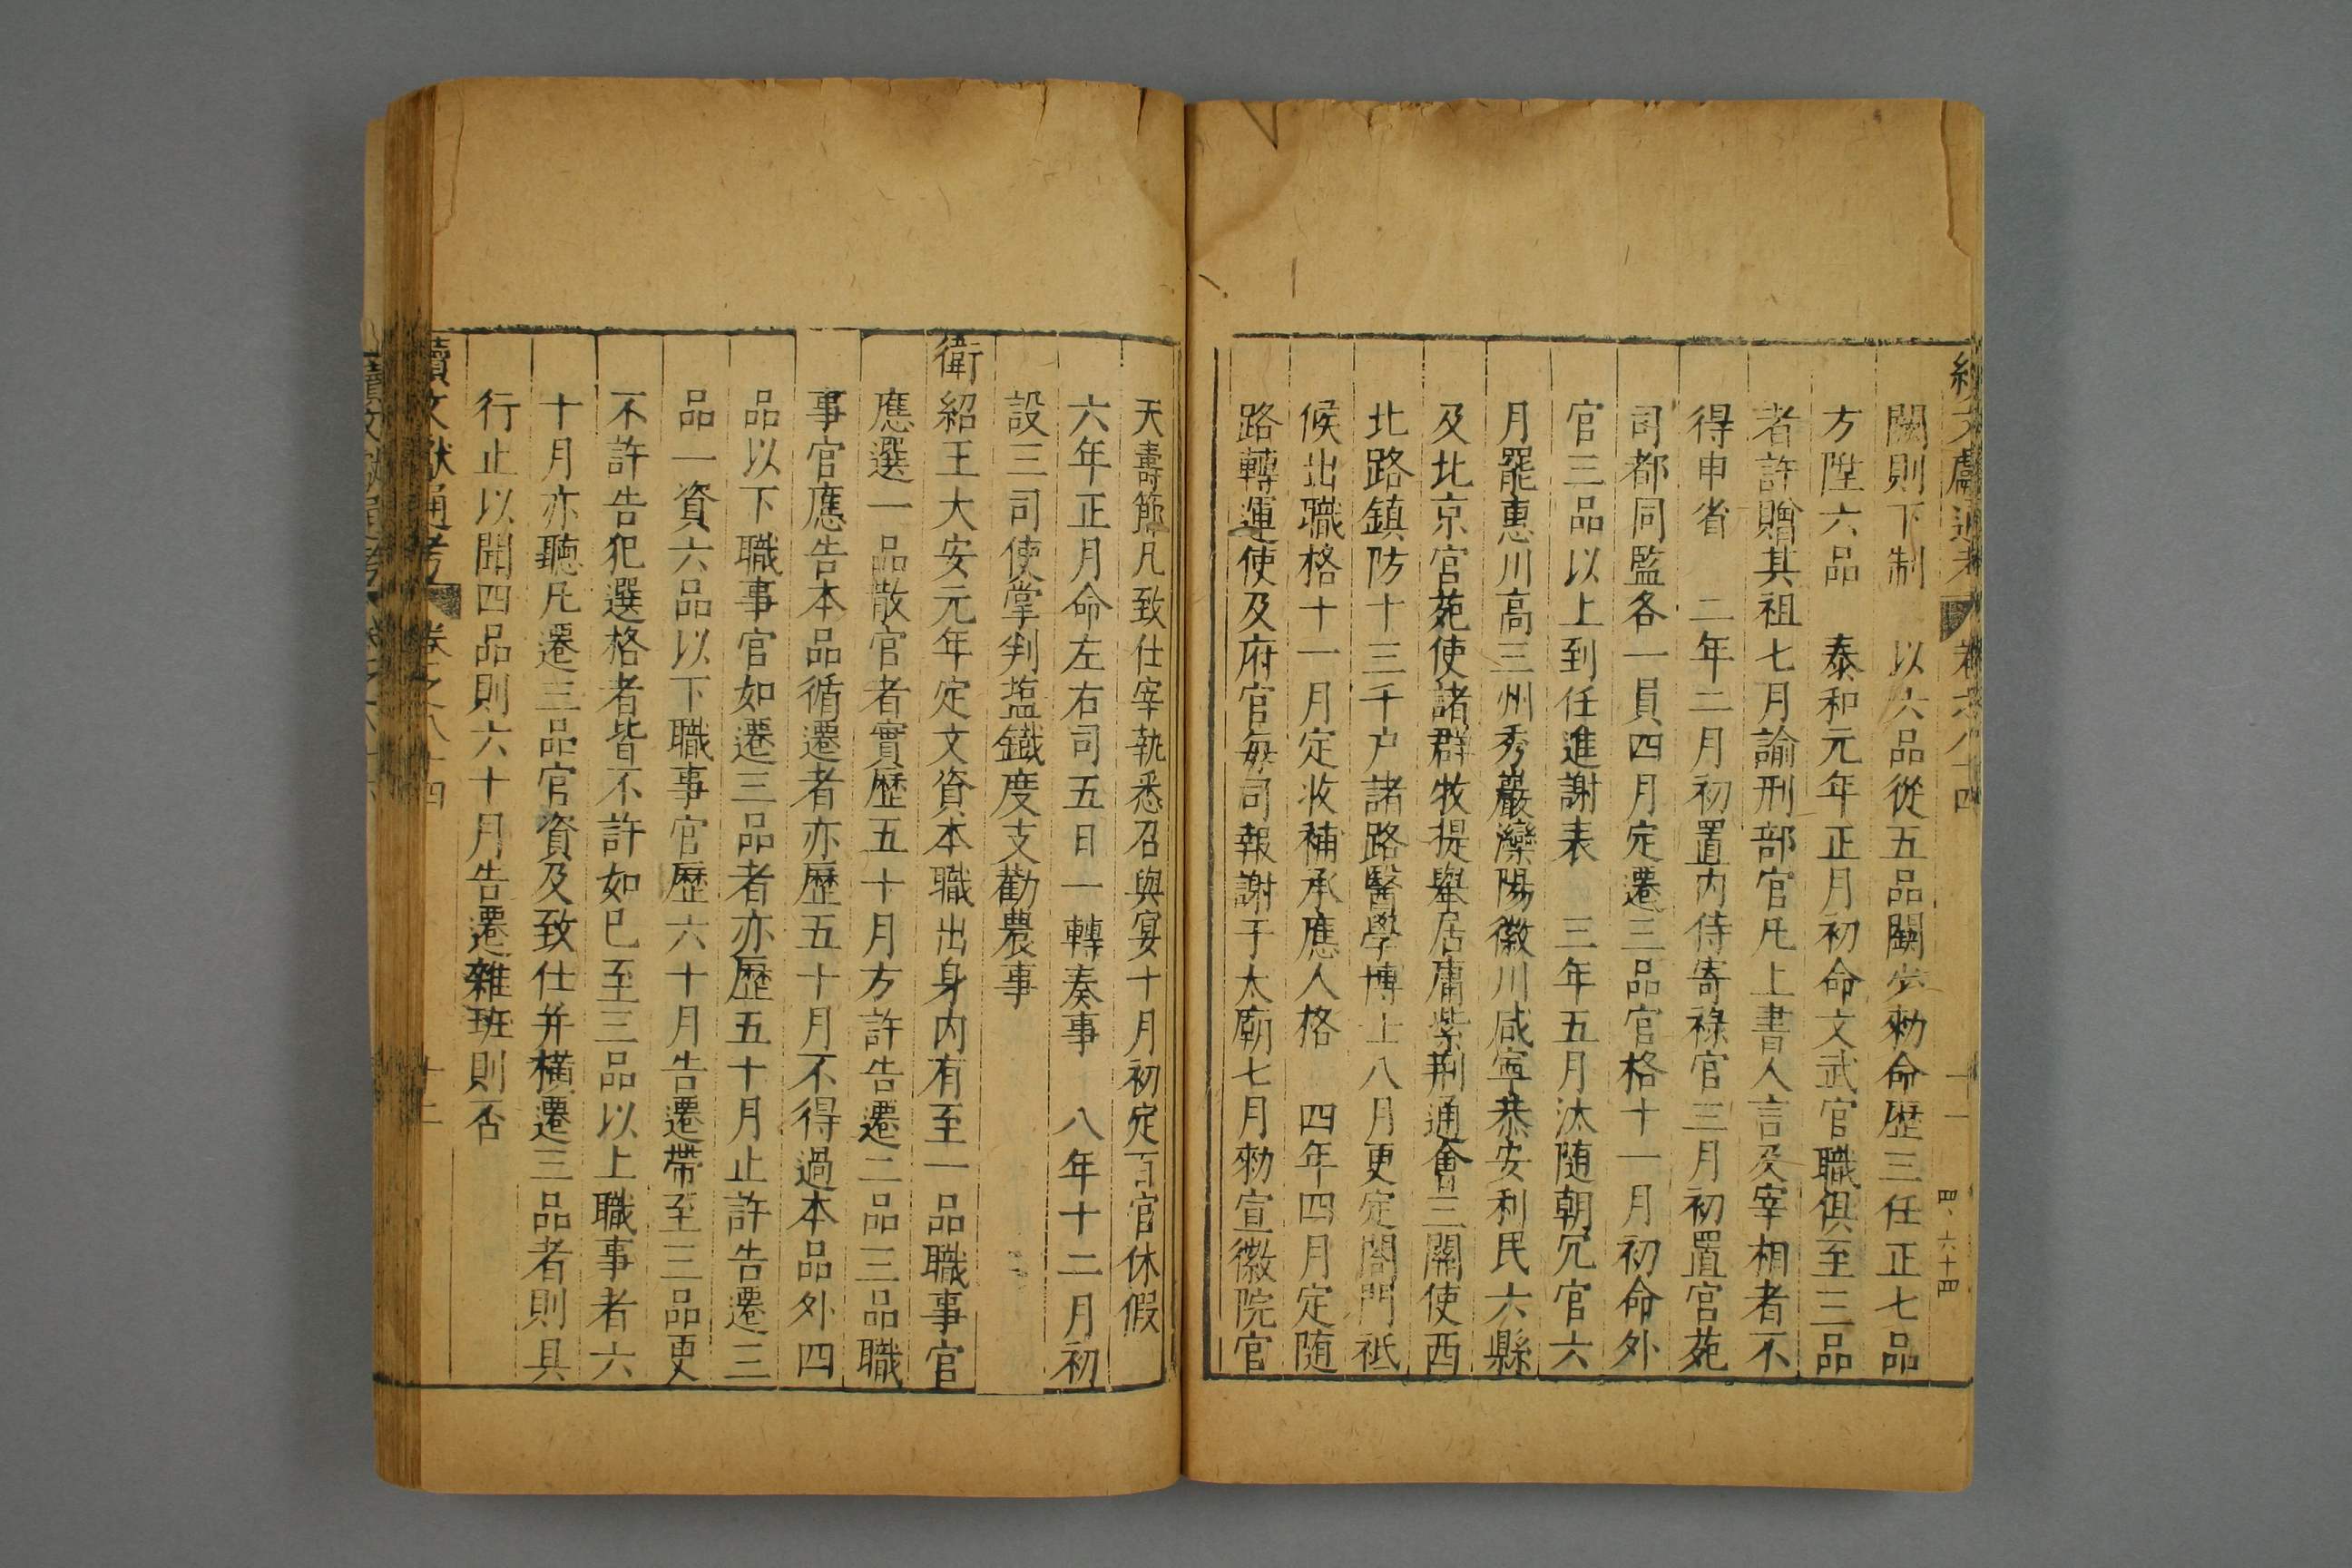 闕則下制　以六品從五品闕少勑命歷三任正七品
方陞六品　泰和元年正月初命文武官職俱至三品
者許贈其祖七月諭刑部官凡上書人言及宰相者不
得申省　二年二月初置内侍寄祿官三月初置官苑
司都同監各一員四月定遷三品官格十一月初命外
官三品以上到任進謝表　三年五月汰随朝冗官六
月罷惠川高三州秀巖灤陽徽川咸寧恭安利民六縣
及北京官苑使諸群牧提舉居庸紫荆通會三關使西
北路鎮防十三千户諸路醫學博士八月更定閤門祗
候出職格十一月定收補承應人格　四年四月定随
路轉運使及府官每司報謝于太廟七月勑宣徽院官
天壽節凡致仕宰執悉召與宴十月初定百官休假
六年正月命左右司五日一轉奏事　八年十二月初
設三司使掌判塩鐵度支勸農事
衛紹王大安元年定文資本職出身内有至一品職事官
應選一品散官者實歷五十月方許告遷二品三品職
事官應告本品循遷者亦歷五十月不得過本品外四
品以下職事官如遷三品者亦歷五十月止許告遷三
品一資六品以下職事官歷六十月告遷帶至三品更
不許告犯選格者皆不許如已至三品以上職事者六
十月亦聽凡遷三品官資及致仕并横遷三品者則具
行止以聞四品則六十月告遷雜班則否
續文獻通考　卷之八十四　十二